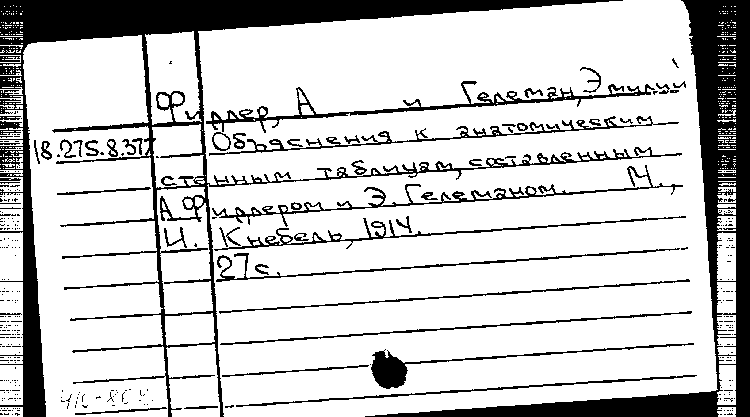 Фидлер, А и Гелеман, Эмилий
18.275.8.377 Объяснения к анатомическим
стенным таблицам, составленным
А Фидлером и Э. Гелеманом. М.,
И. Кнебель, 1914.
27 с.